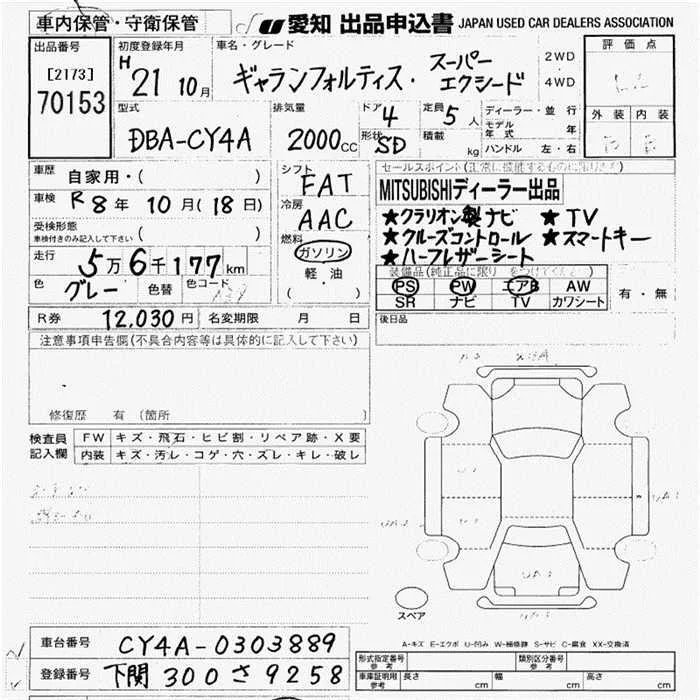 車内保管・守衛保管
愛知 出品申込書 JAPAN USED CAR DEALERS ASSOCIATION
出品番号
[2173]
70153
初度登録年月
H 21 10月
車名・グレード
ギャランフォルティス・スーパーエクシード
2WD
4WD
評価点
外装 内装
型式
DBA-CY4A
排気量
2000cc
ドア 4
形状 SD
定員 5人
積載 kg
ディーラー・並行
モデル年式 年
ハンドル 左・右
車歴 自家用・( )
車検 R8年 10月(18日)
受検形態
車検付きのみ記入して下さい ( )
走行 5万6千177km
色 グレー 色替 色コード
シフト
FAT
冷房
AAC
燃料
ガソリン
軽油
( )
セールスポイント
MITSUBISHIディーラー出品
★クラリオン製ナビ ★TV
★クルーズコントロール ★スマートキー
★ハーフレザーシート
PS PW エアB AW
SR ナビ TV カワシート
有・無
R券 12,030円 名変期限 月 日
後日品
注意事項申告欄(不具合内容等は具体的に記入して下さい)
修復歴 有 (箇所
検査員記入欄
FW キズ・飛石・ヒビ割・リペア跡・X要
内装 キズ・汚レ・コゲ・穴・ズレ・キレ・破レ
スペア
A-キズ E-エクボ U-凹み W-補修跡 S-サビ C-腐食 XX-交換済
車台番号 CY4A-0303889
登録番号 下関 300 さ 9258
形式指定番号 参考
類別区分番号 参考
車庫証明用 参考 長さ cm 幅 cm 高さ cm